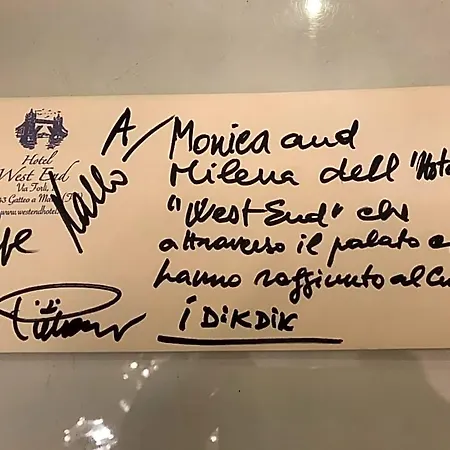 Hotel
West End
Via Forlì,
Gatteo a Mare
www.westendhotel
A Monica and
Milena dell'Hote
"West End" che
attraverso il palato c
hanno raggiunto al Cu
i DIKDIK
Pallo
Pietruccio